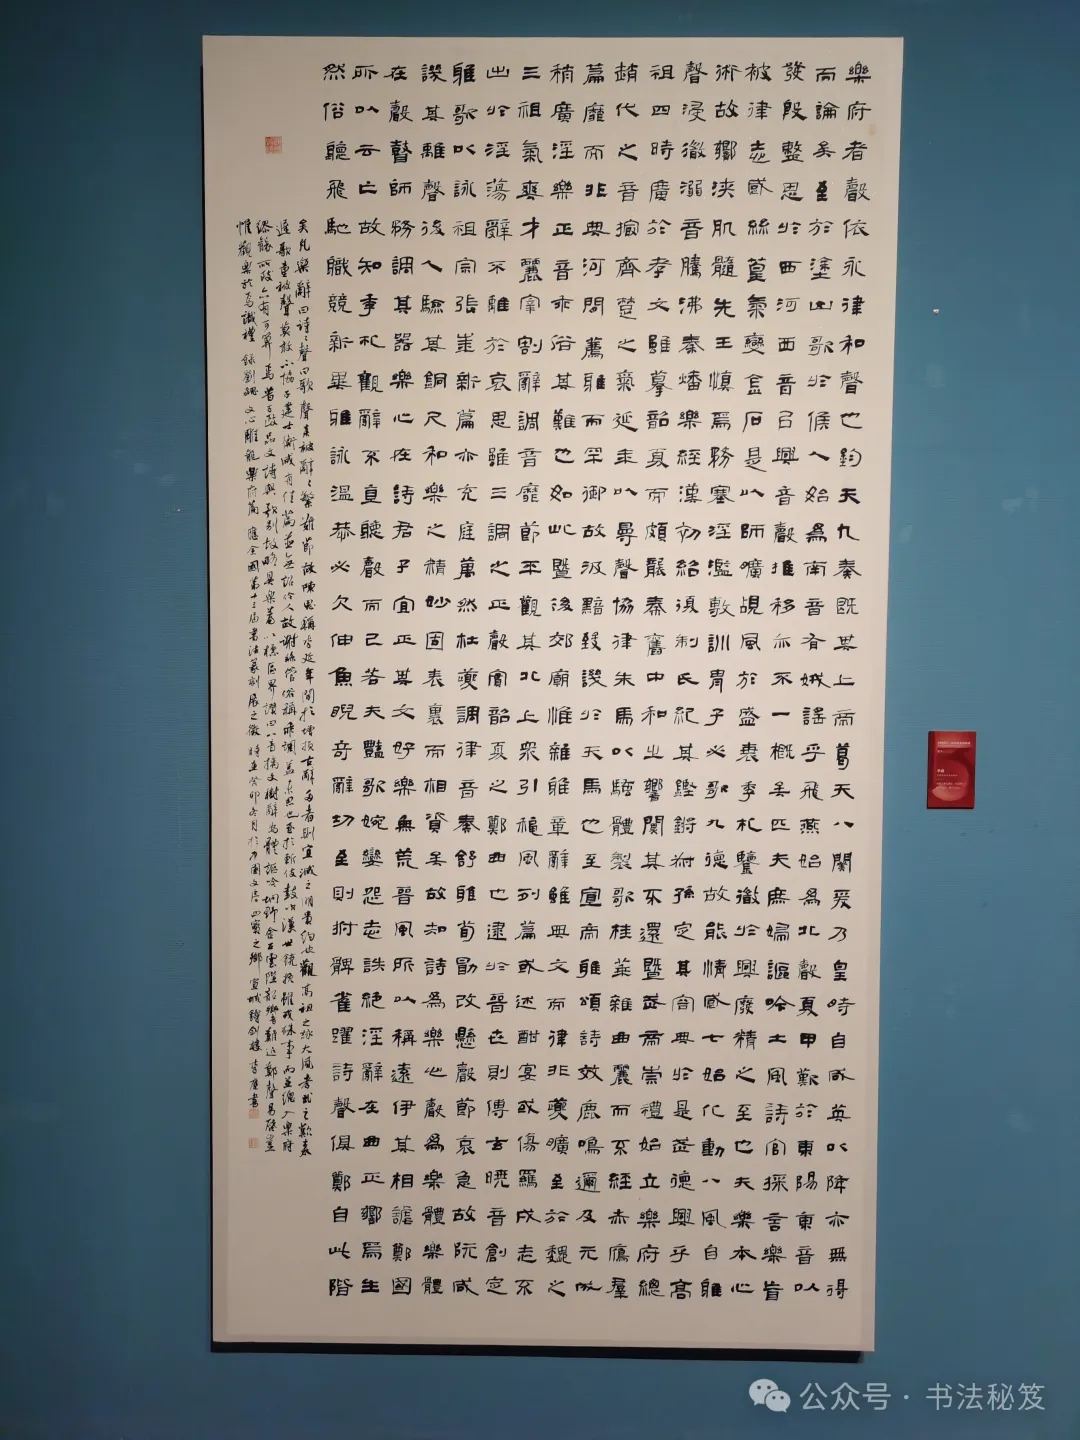 樂府者聲依永律和聲也鈞天九奏既其上帝葛天八闋爰乃皇時自咸英以降亦無得
而論矣至於塗山歌於候人始為南音有娀謠乎飛燕始為北聲夏甲歎於東陽東音以
發殷整思於西河西音以興音聲推移亦不一概矣匹夫庶婦謳吟土風詩官採言樂盲
被律志感絲篁氣變金石是以師曠覘風於盛衰季札鑒微於興廢精之至也夫樂本心
術故響浹肌髓先王慎焉務塞淫濫敷訓胄子必歌九德故能情感七始化動八風自雅
聲浸微溺音騰沸秦燔樂經漢初紹復制氏紀其鏗鏘叔孫定其容典於是武德興乎高
祖四時廣於孝文雖摹韶夏而頗襲秦舊中和之響闃其不還暨武帝崇禮始立樂府總
趙代之音撮齊楚之氣延年以曼聲協律朱馬以騷體製歌桂華雜曲麗而不經赤鴈羣
篇靡而非典河間薦雅而罕御故汲黯致譏於天馬也至宣帝雅頌詩效鹿鳴邇及元成
稍廣淫樂正音乖俗其難也如此暨後郊廟惟雜雅章辭雖典文而律非夔曠至於魏之
三祖氣爽才麗宰割辭調音靡節平觀其北上眾引秋風列篇或述酣宴或傷羈戍志不
出於淫蕩辭不離於哀思雖三調之正聲實韶夏之鄭曲也逮於晉世則傅玄曉音創定
雅歌以詠祖宗張華新篇亦充庭萬然杜夔調律音奏舒雅荀勖改懸聲節哀急故阮咸
譏其離聲後人驗其銅尺和樂之精妙固表裏而相資矣故知詩為樂心聲為樂體樂體
在聲瞽師務調其器樂心在詩君子宜正其文好樂無荒晉風所以稱遠伊其相謔鄭國
所以云亡故知季札觀辭不直聽聲而已若夫豔歌婉孌怨志訣絕淫辭在曲正響焉生
然俗聽飛馳職競新異雅詠溫恭必欠伸魚睨奇辭切至則拊髀雀躍詩聲俱鄭自此階
矣凡樂辭曰詩詩聲曰歌聲來被辭辭繁難節故陳思稱左延年閒於增損古辭多者則宜減之明貴約也觀高祖之詠大風孝武之歎來
遲歌童被聲莫敢不協子建士衡咸有佳篇並無詔伶人故謝絲管俗稱乖調蓋未思也至於斬伎鼓吹漢世鐃挽雖戎殊事而並總入樂府
繆襲所改亦有可算焉昔子政品文詩與歌別故略具樂篇以標區界讚曰八音摛文樹辭為體謳吟坰野金石雲陛韶響難追鄭聲易啟豈
惟觀樂於焉識禮 錄劉勰文心雕龍樂府篇 應全國第十三屆書法篆刻展之徵 時在癸卯冬月於中國文房四寶之鄉宣城鑄劍樓 李書
公众号 · 书法秘笈